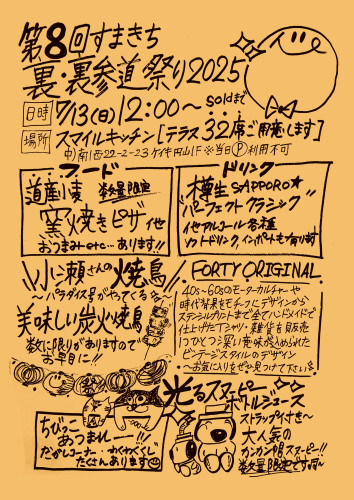 第8回すまきち
裏・裏参道祭り2025
日時 7/13(日)12:00〜soldまで
場所 スマイルキッチン[テラス32席ご用意します]
中)南1西22-2-23 ケイキ円山1F ※当日Ⓟ利用不可
フード
道産小麦 数量限定
窯焼きピザ他
おつまみetc…あります!!
ドリンク
樽生SAPPORO★
"パーフェクトクラシック"
他アルコール各種
ソフトドリンク、インポートも有ります
小瀬さんの焼鳥
〜パラダイス号がやってくる
美味しい炭火焼鳥
数に限りがありますので
お早目に!!
FORTY ORIGINAL
40s〜60sのモーターカルチャーや
時代背景をモチーフにデザインから
ステンシルプリントまで全てハンドメイドで
仕上げたTシャツ・雑貨を販売
1つひとつ深い意味が込められた
ビンテージスタイルのデザイン
〜お気に入りをぜひ見つけて下さい
光るスヌーピー
ボトルジュース
ストラップ付き〜
大人気の
カンカン帽スヌーピー!!
数量限定ですヨ〜
ちびっこ
あつまれー!!
だがしコーナー・わくわくくじ
たくさんあります